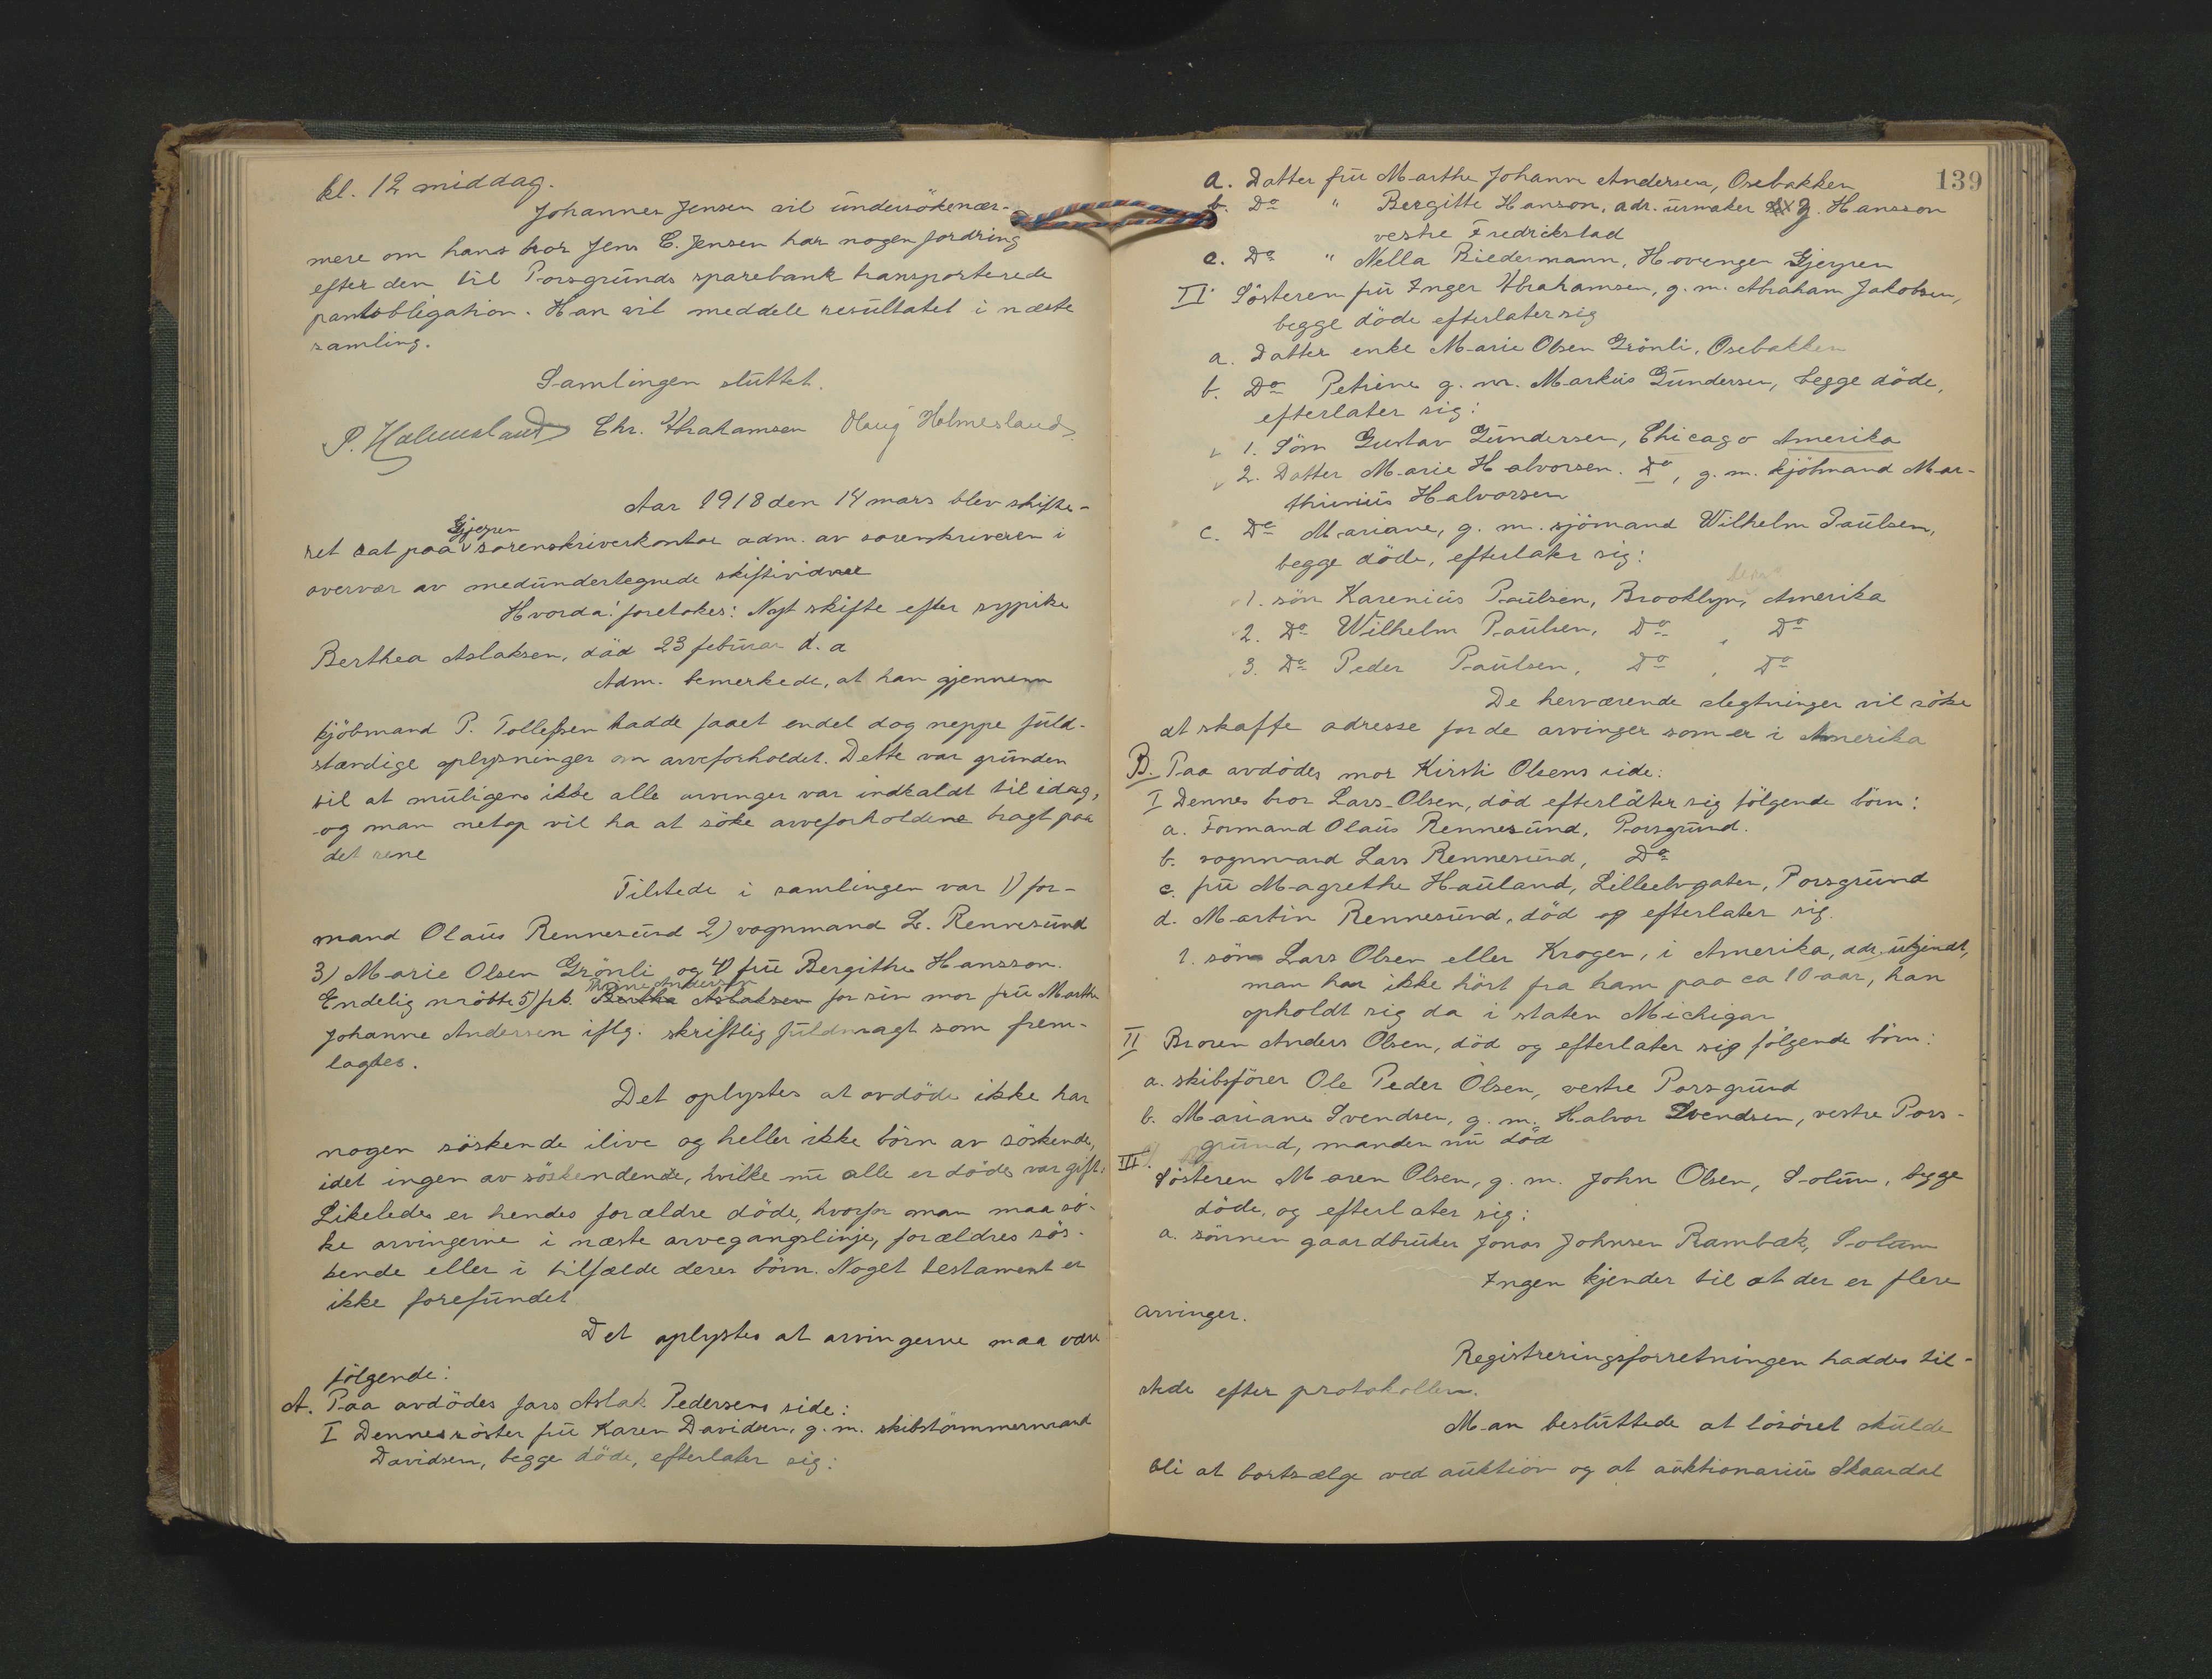 kl. 12 middag.
Johannes Jensen vil undersöke nær-
mere om hans bror Jens C. Jensen har nogen fordring
efter den til Porsgrunds sparebank transporterede
pantobligation. Han vil meddele resultatet i næste
samling.
Samlingen sluttet.
P. Holmesland Chr. Abrahamsen Olaug Holmesland
Aar 1918 den 14 mars blev skifte-
Gjerpen
ret sat paa sorenskriverkontor adm. av sorenskriveren i
overvær av medundertegnede skiftevidner
Hvorda: foretokes: Nyt skifte efter sypike
Berthea Aslaksen, död 23 februar d. a
Adm. bemerkede, at han gjennem
kjöbmand P. Tollefsen hadde faaet endel dog neppe fuld-
stændige oplysninger om arveforholdet. Dette var grunden
til at muligens ikke alle arvinger var indkaldt til idag,
og man netop vil ha at söke arveforholdene bragt paa
det rene
Tilstede i samlingen var 1) for-
mand Olaus Rennesund 2) vognmand L. Rennesund
3) Marie Olsen Grönli og 4) fru Bergithe Hansson.
Andersen
Endelig mötte 5) frk. Bertha Aslaksen for sin mor fru Marthe
Johanne Andersen iflg. skriftlig fuldmagt som frem-
lagdes.
Det oplystes at avdöde ikke har
nogen söskende ilive og heller ikke börn av söskende,
idet ingen av söskendende, hvilke nu alle er döde, var gift.
Likeledes er hendes forældre döde, hvorfor man maa sö-
ke arvingerne i næste arvegangslinje, forældres sös-
kende eller i tilfælde deres börn. Noget testament er
ikke forefundet
Det oplystes at arvingerne maa være
følgende:
A. Paa avdödes fars Aslak Pedersens side:
I Dennes söster fru Karen Davidsen, g. m. skibstömmermand
Davidsen, begge döde, efterlater sig:
139
a. Datter fru Marthe Johanne Andersen, Osebakken
b. Do " Bergitte Hanson, adr. urmaker J. Hansson
vestre Fredrikstad
c. Do " Nella Riedermann, Hovenger Gjerpen
II. Sösteren fru Inger Abrahamsen, g. m. Abraham Jakobsen,
begge döde efterlater sig
a. Datter enke Marie Olsen Grönli, Osebakken
b. Do Petrine g. m. Markus Gundersen, begge döde,
efterlater sig:
1. Sön Gustav Gundersen, Chicago Amerika
2. Datter Marie Halvorsen. Do, g. m. kjöbmand Mar-
thinius Halvorsen
c. Do Mariane, g. m. sjömand Wilhelm Paulsen,
begge döde, efterlater sig:
1. sön Karenius Paulsen, Brooklyn, Amerika
2. Do Wilhelm Paulsen, Do , Do
3. Do Peder Paulsen, Do , Do
De herværende slegtninger vil söke
at skaffe adresse for de arvinger som er i Amerika
B. Paa avdödes mor Kirsti Olsens side:
I Dennes bror Lars Olsen, död efterlater sig fölgende börn:
a. Formand Olaus Rennesund, Porsgrund.
b. vognmand Lars Rennesund, Do
c. fru Magrethe Hauland, Lilleelvgaten, Porsgrund
d. Martin Rennesund, död og efterlater sig.
1. sön Lars Olsen eller Krogen, i Amerika, adr. ukjendt,
man har ikke hört fra ham paa ca 10 aar, han
opholdt sig da i staten Michigan
II Broren Anders Olsen, död og efterlater sig fölgende börn:
a. skibsförer Ole Peder Olsen, vestre Porsgrund
b. Mariane Svendsen, g. m. Halvor Svendsen, vestre Pors-
grund, manden nu död
III.
Sösteren Maren Olsen, g. m. John Olsen, Solum, begge
döde, og efterlater sig:
a. sönnen gaardbruker Jonas Johnsen Rambæk, Solum
Ingen kjender til at der er flere
arvinger.
Registreringsforretningen haddes til-
stede efter protokollen.
Man besluttede at lösöret skulde
bli at bortsælge ved auktion og at auktionarius Skaardal